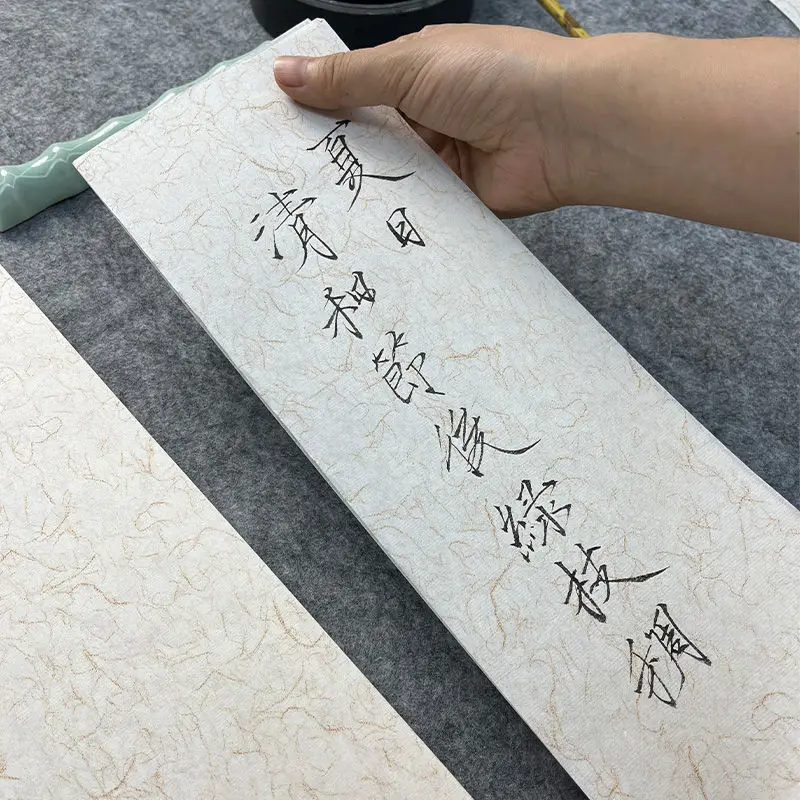 夏日
清和節後綠枝稠